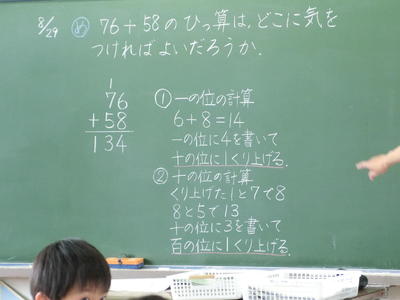 8/29 め 76+58のひっ算は、どこに気を
つければよいだろうか.
1
76
+58
134
①一の位の計算
6+8=14
一の位に4を書いて
十の位に1くり上げる.
②十の位の計算
くり上げた1と7で8
8と5で13
十の位に3を書いて
百の位に1くり上げる.